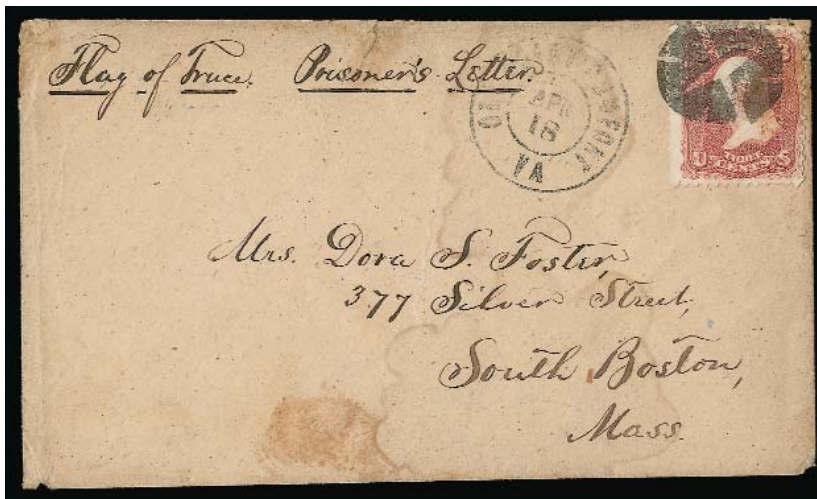 Flag of Truce. Prisoner's Letter.
OLD POINT COMFORT
APR
18
VA
U THREE S
CENTS
Mrs. Dora S. Foster,
377 Silver Street,
South Boston,
Mass.